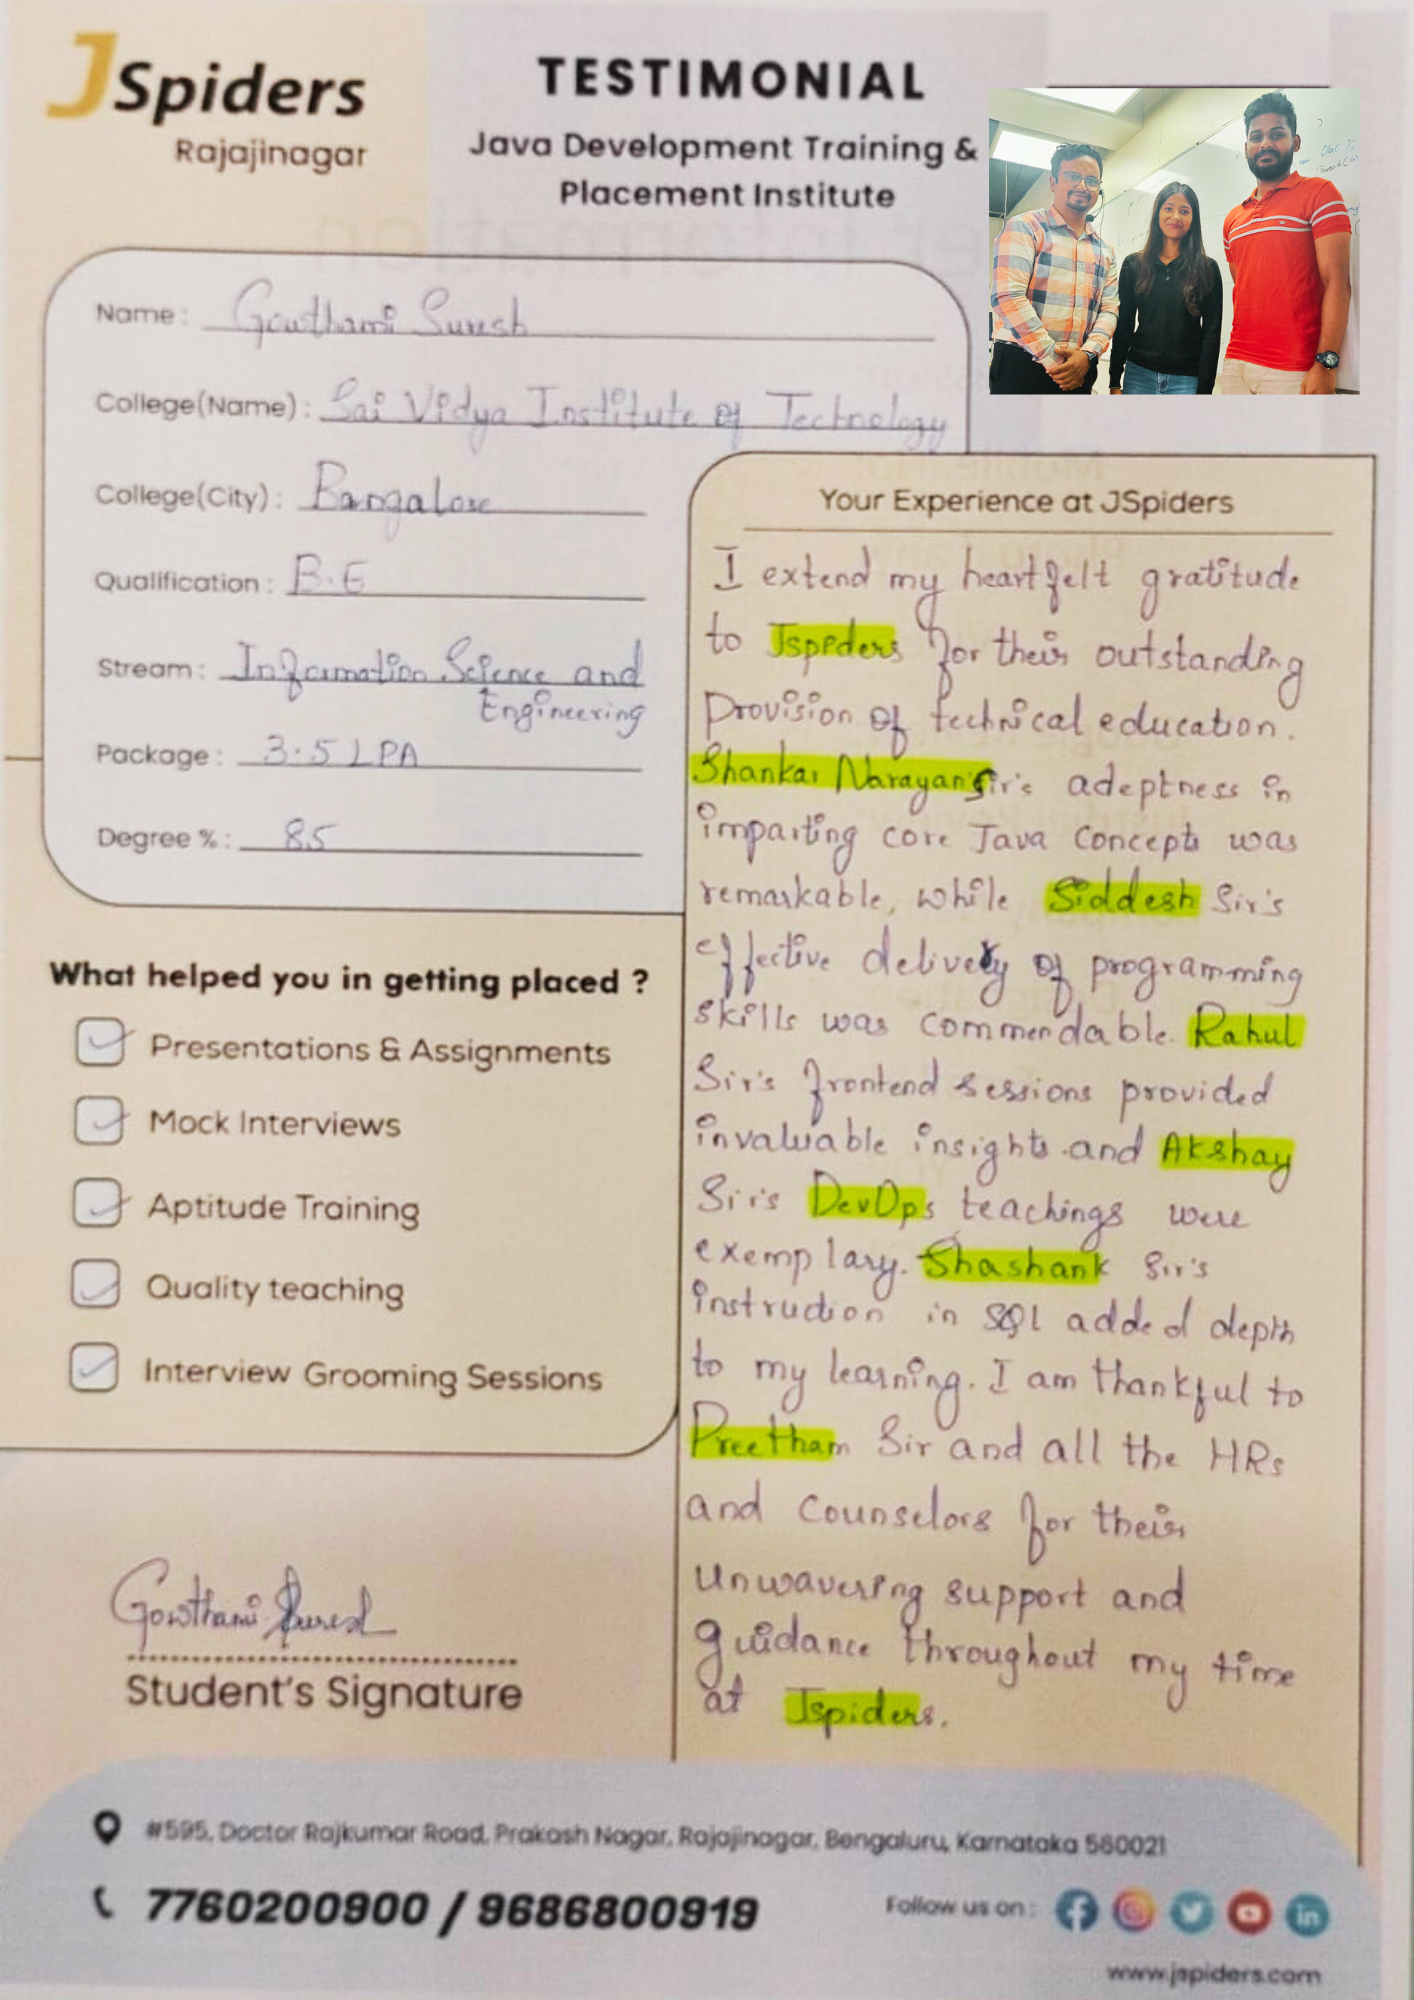 JSpiders
Rajajinagar
TESTIMONIAL
Java Development Training &
Placement Institute
Name : Gowthami Suresh
College(Name) : Sai Vidya Institute of Technology
College(City) : Bangalore
Qualification : B.E
Stream : Information Science and
Engineering
Package : 3.5 LPA
Degree % : 85
What helped you in getting placed ?
Presentations & Assignments
Mock Interviews
Aptitude Training
Quality teaching
Interview Grooming Sessions
Gowthami Suresh
Student's Signature
Your Experience at JSpiders
I extend my heartfelt gratitude
to Jspiders for their outstanding
provision of technical education.
Shankar Narayan Sir's adeptness in
imparting core Java Concepts was
remarkable, while Siddesh Sir's
effective delivery of programming
skills was commendable. Rahul
Sir's frontend sessions provided
invaluable insights and Akshay
Sir's DevOps teachings were
exemplary. Shashank Sir's
instruction in SQL added depth
to my learning. I am thankful to
Preetham Sir and all the HRs
and Counselors for their
unwavering support and
guidance throughout my time
at Jspiders.
#595, Doctor Rajkumar Road, Prakash Nagar, Rajajinagar, Bengaluru, Karnataka 560021
7760200900 / 9686800919
Follow us on :
www.jspiders.com